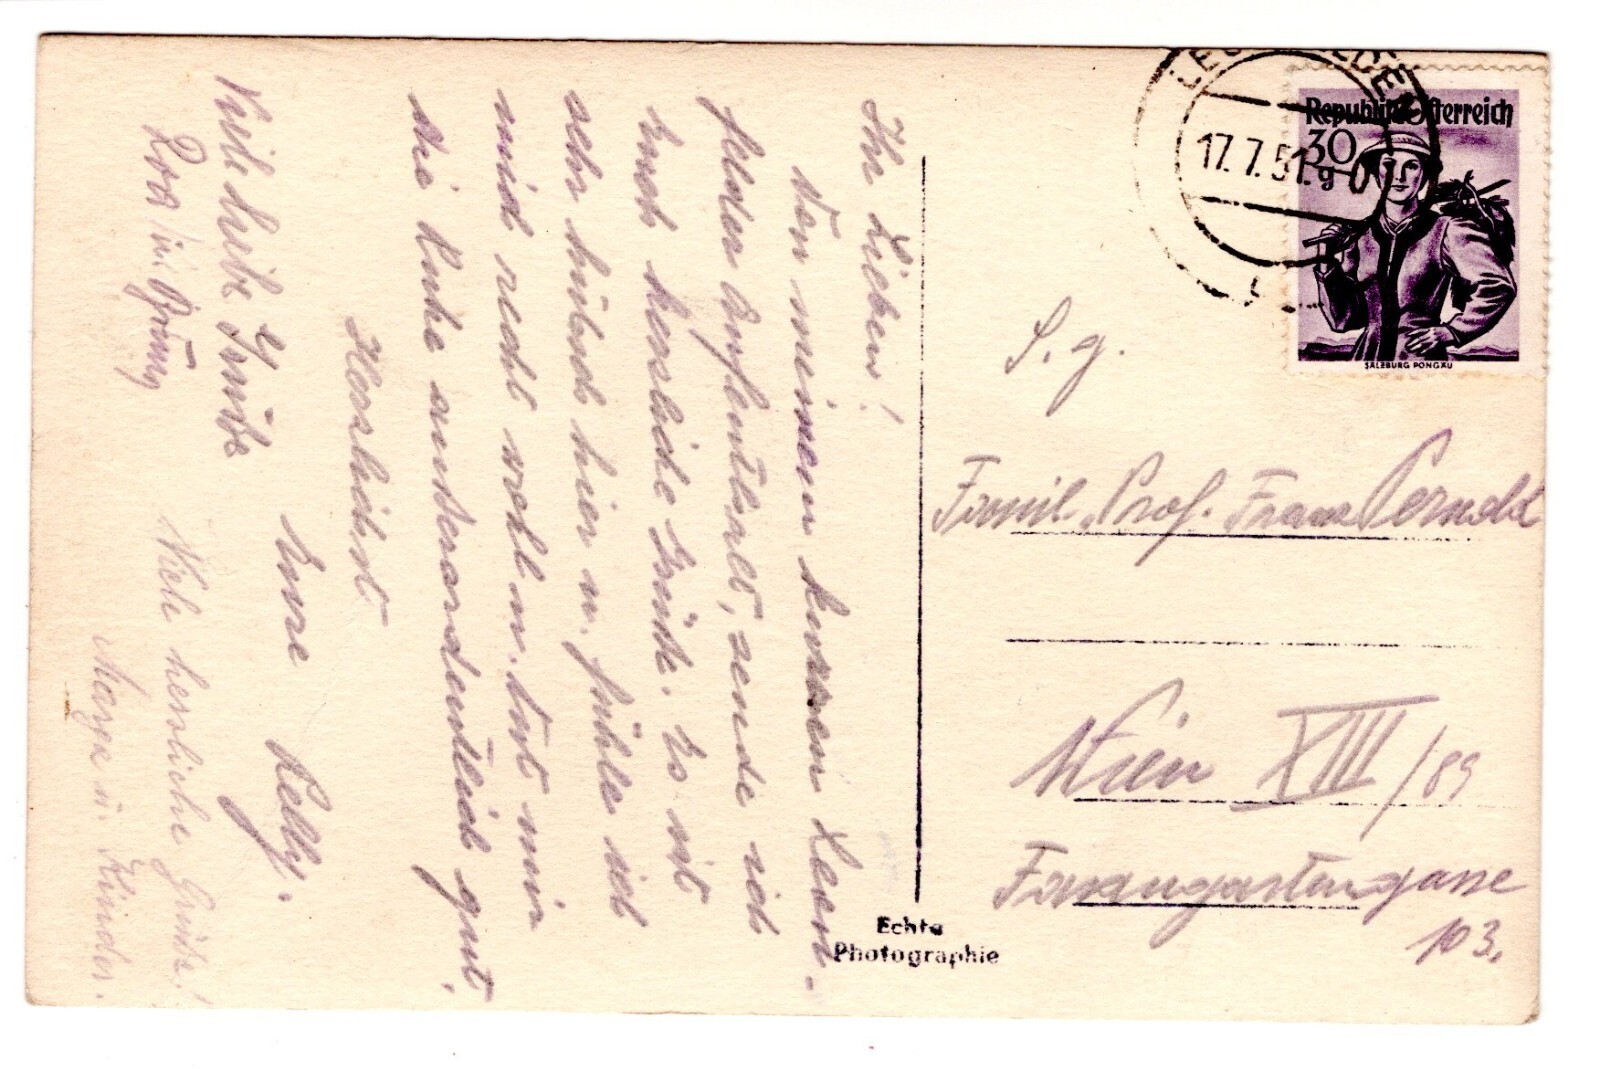 Ihr Lieben!
Von meinem kurzen Leon-
feldner Aufenthalt, sende ich
Euch herzliche Grüße. Es ist
sehr hübsch hier u. fühle ich
mich recht wohl u. tut mir
die Ruhe außerordentlich gut.
Herzlichst
Eure Pelly.
Viele liebe Grüße
Viele herzliche Grüße!
u. Kinder.
LEO FELDEN
17. 7. 51.
Republik Österreich
30 g
SALZBURG PONGAU
S. g.
Famil. Prof. Franz
Wien XIII/89
gasse
103.
Echte
Photographie